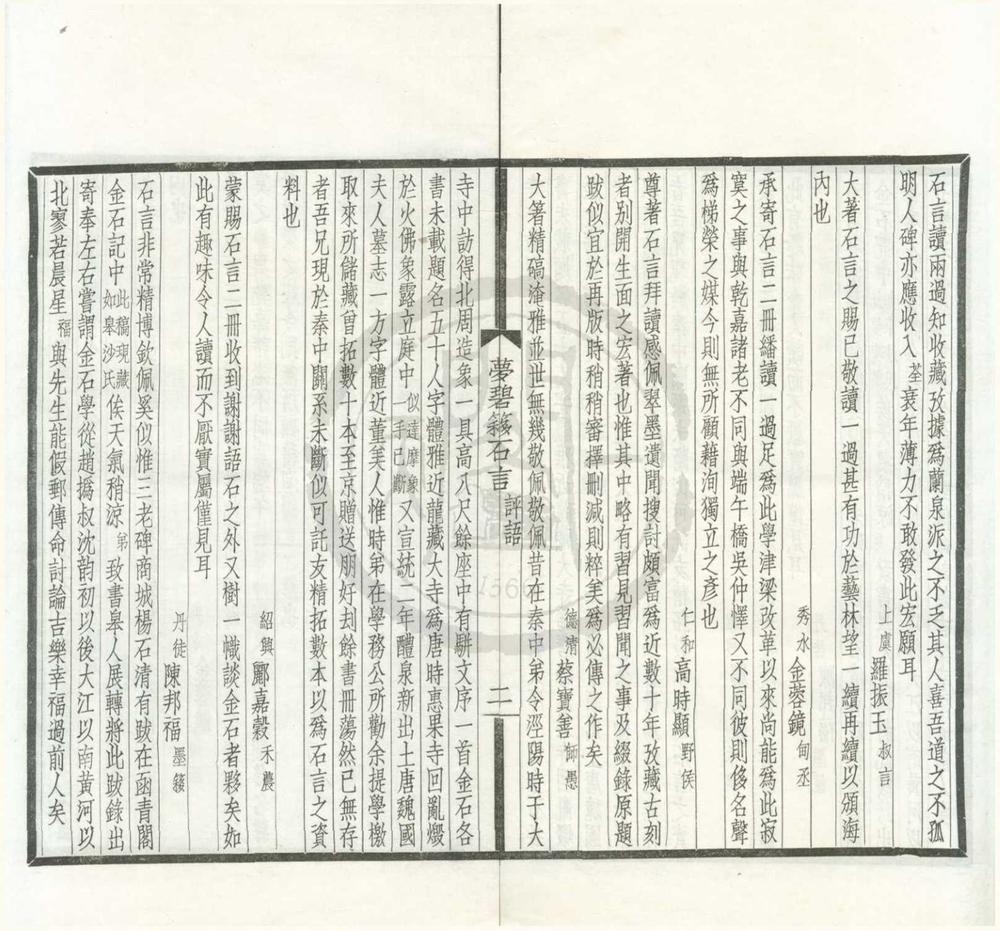 石言讀兩過知收藏攷據爲蘭泉派之不乏其人喜吾道之不孤
明人碑亦應收入荃衰年薄力不敢發此宏願耳
上虞羅振玉叔言
大著石言之賜已敬讀一過甚有功於藝林望一續再續以頌海
內也
秀水金蓉鏡甸丞
承寄石言二冊繙讀一過足爲此學津梁改革以來尚能爲此寂
寞之事與乾嘉諸老不同與端午橋吳仲懌又不同彼則侈名聲
爲梯榮之媒今則無所顧藉洵獨立之彥也
仁和高時顯野侯
尊著石言拜讀感佩翠墨遺聞搜討頗富爲近數十年攷藏古刻
者別開生面之宏著也惟其中略有習見習聞之事及綴錄原題
跋似宜於再版時稍稍審擇刪減則粹美爲必傳之作矣
德清蔡寶善師愚
大箸精碻淹雅並世無幾敬佩敬佩昔在秦中弟令涇陽時于大
夢碧簃石言
評語
二
寺中訪得北周造象一具高八尺餘座中有駢文序一首金石各
書未載題名五十人字體雅近龍藏大寺爲唐時惠果寺回亂燬
於火佛象露立庭中似達摩象一手已斷又宣統二年醴泉新出土唐魏國
夫人墓志一方字體近董美人惟時弟在學務公所勸余提學檄
取來所儲藏曾拓數十本至京贈送朋好刦餘書冊蕩然已無存
者吾兄現於秦中關系未斷似可託友精拓數本以爲石言之資
料也
紹興酈嘉穀禾農
蒙賜石言二冊收到謝謝語石之外又樹一幟談金石者夥矣如
此有趣味令人讀而不厭實屬僅見耳
丹徒陳邦福墨簃
石言非常精博欽佩奚似惟三老碑商城楊石清有跋在函青閣
金石記中此稿現藏如皋沙氏俟天氣稍涼弟致書皋人展轉將此跋錄出
寄奉左右嘗謂金石學從趙撝叔沈韵初以後大江以南黃河以
北寥若晨星福與先生能假郵傳命討論吉樂幸福過前人矣